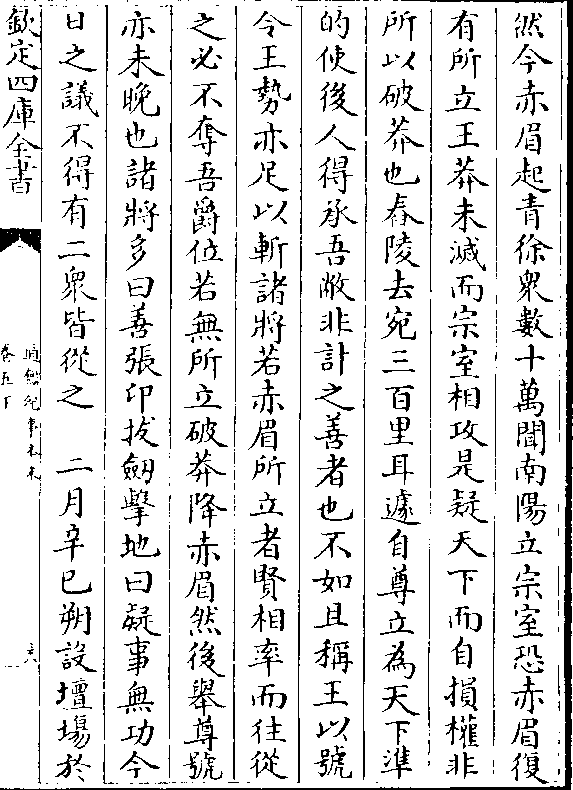 然今赤眉起青徐衆數十萬聞南陽立宗室恐赤眉復
有所立王莽未滅而宗室相攻是疑天下而自損權非
所以破莽也舂陵去宛三百里耳遽自尊立為天下準
的使後人得承吾敝非計之善者也不如且稱王以號
令王勢亦足以斬諸將若赤眉所立者賢相率而往從
之必不奪吾爵位若無所立破莽降赤眉然後舉尊號
亦未晚也諸將多曰善張卬拔劒擊地曰疑事無功今
日之議不得有二衆皆從之　二月辛巳朔設壇場於
欽定四庫全書
通鑑紀事本末
卷五下
六